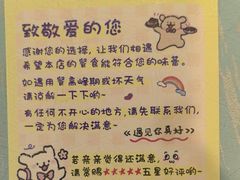 致敬爱的您
感谢您的选择，让我们相遇
希望本店的餐食能符合您的味蕾。
如遇用餐高峰期或坏天气
请谅解一下下哟~
有任何不开心的地方，请先联系我们，
一定为您解决满意~
《遇见你真好》
若亲亲觉得还满意，
请赏赐★★★★★五星好评哟~